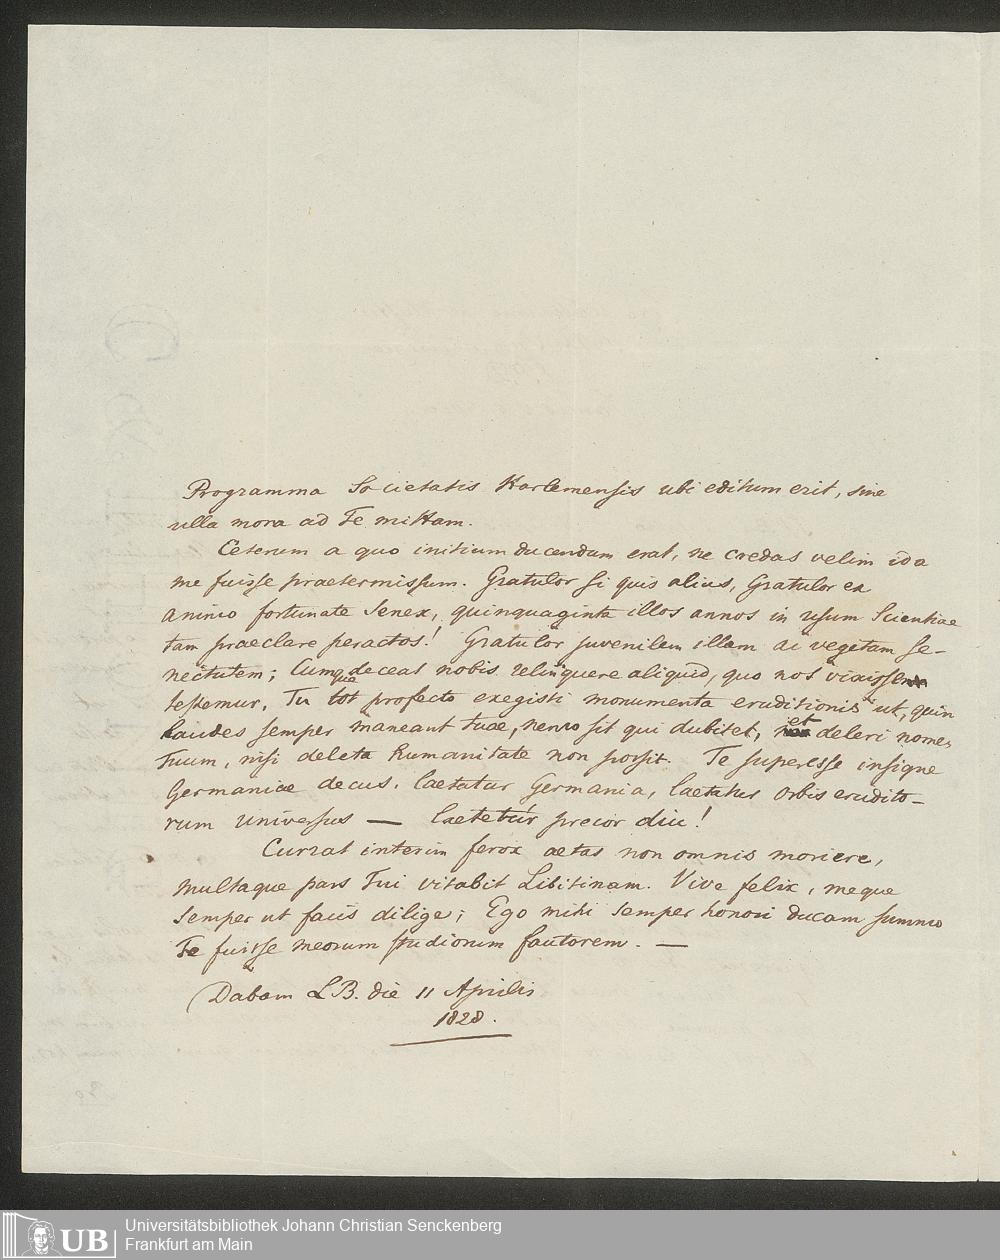 Programma Societatis Harlemensis ubi editum erit, sine
ulla mora ad Te mittam.
Ceterum a quo initium ducendum erat, ne credas velim id a
me fuisse praetermissum. Gratulor si quis alius, Gratulor ex
animo fortunate Senex, quinquaginta illos annos in usum Scientiae
tam praeclare peractos! Gratulor juvenilem illam ac vegetam se-
nectutem; Cumque deceat nobis relinquere aliquid, quo nos vixisse
testemur, Tu tot profecto exegisti monumenta eruditionis ut, quin
Laudes semper maneant tuae, nemo sit qui dubitet, et deleri nomen
Tuum, nisi deleta humanitate non possit. Te superesse insigne
Germaniae decus, laetatur Germania, laetatur Orbis erudito-
rum universus — laetetur precor diu!
Currat interim ferox aetas non omnis moriere,
multaque pars Tui vitabit Libitinam. Vive felix, meque
semper ut facis dilige; Ego mihi semper honori ducam summo
Te fuisse meorum studiorum fautorem. —
Dabam LB. die 11 Aprilis
1828.
UB
Universitätsbibliothek Johann Christian Senckenberg
Frankfurt am Main